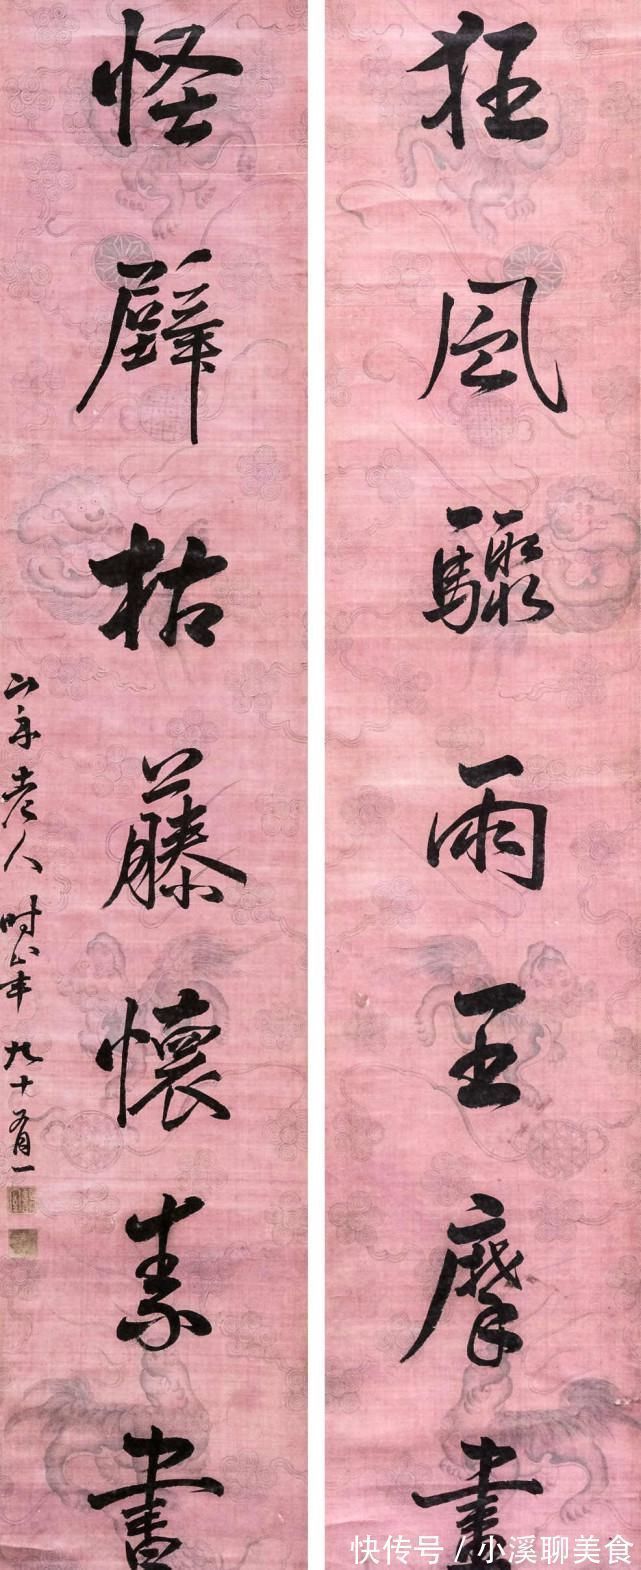 狂風驟雨王摩畫
怪壁枯藤懷素書
山舟老人時年九十有一
快传号 / 小溪聊美食